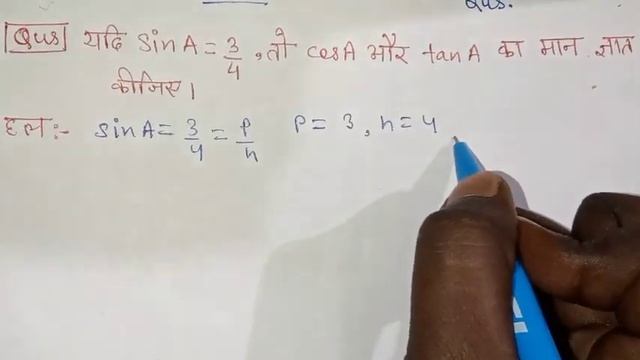 Qus.
Qus यदि sinA = 3/4 , तो cosA और tanA का मान ज्ञात
कीजिए।
हल:- sinA = 3/4 = P/h P = 3 , h = 4